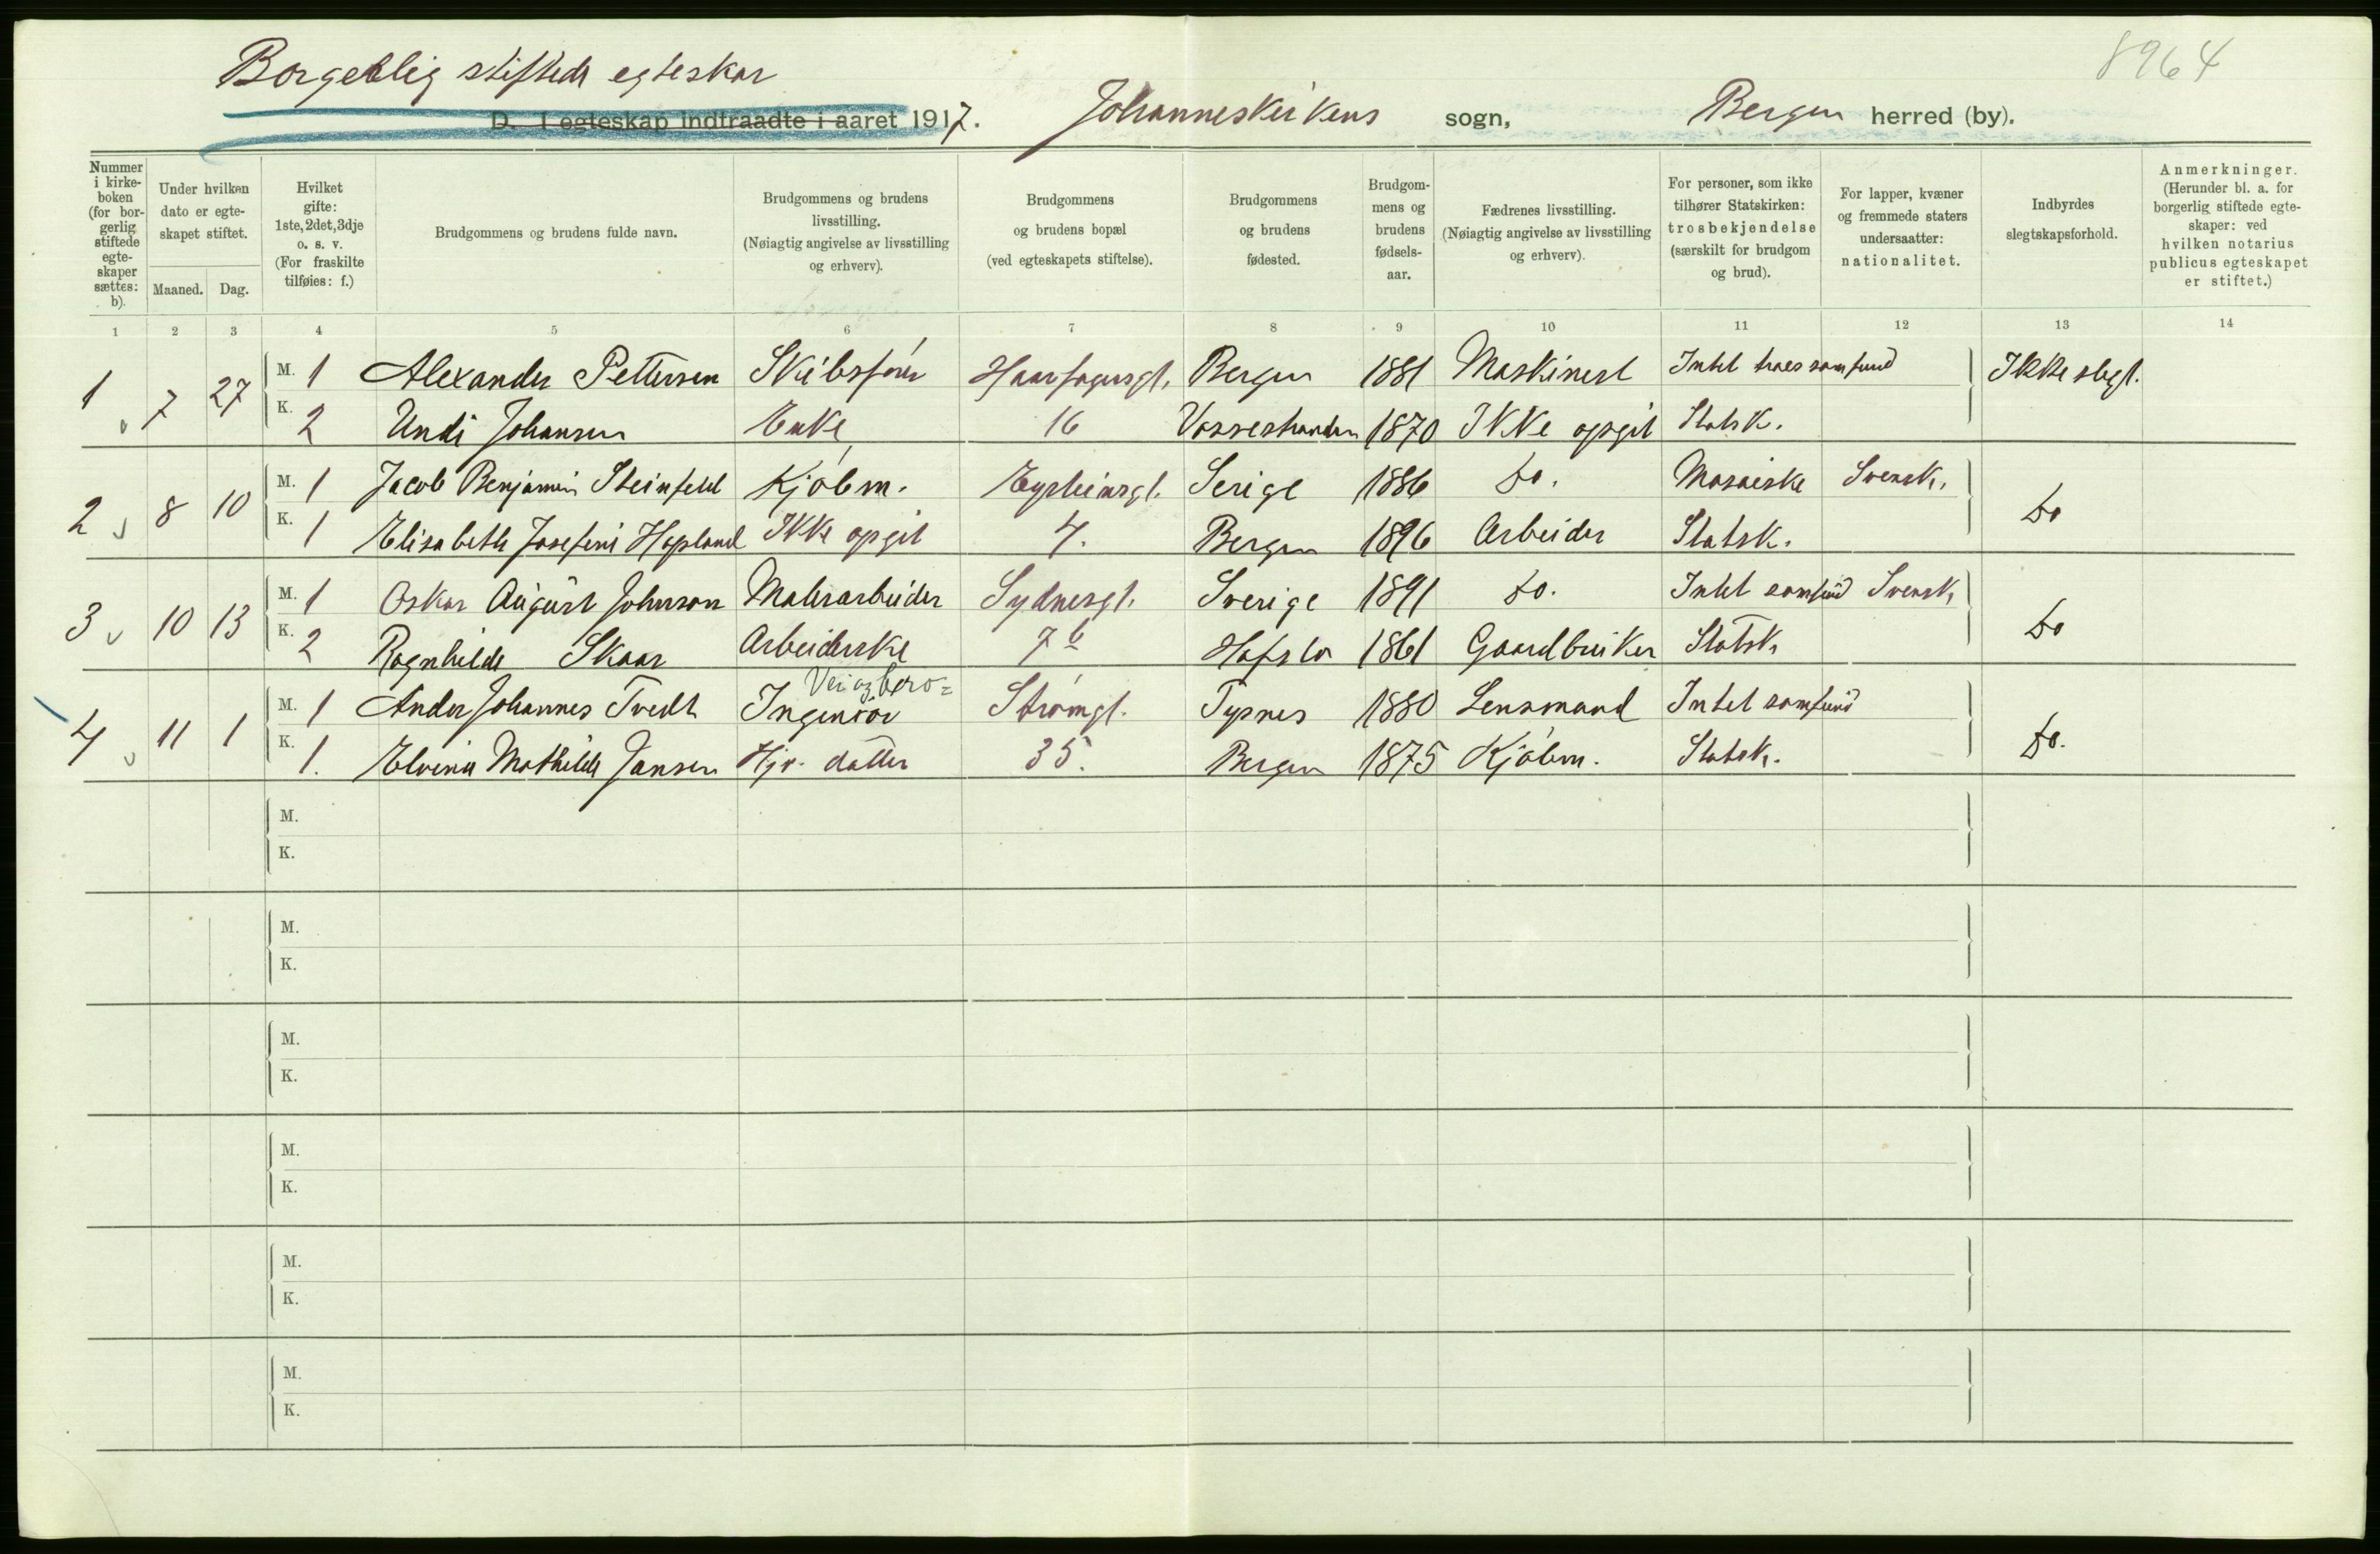 8964
Borgerlig stiftede egteskap
D. I egteskap indtraadte i aaret 1917. Johanneskirkens sogn, Bergen herred (by).
Nummer i kirkeboken (for borgerlig stiftede egteskaper sættes: b).
Under hvilken dato er egteskapet stiftet.
Maaned. Dag.
Hvilket gifte: 1ste, 2det, 3dje o. s. v. (For fraskilte tilføies: f.)
Brudgommens og brudens fulde navn.
Brudgommens og brudens livsstilling. (Nøiagtig angivelse av livsstilling og erhverv).
Brudgommens og brudens bopæl (ved egteskapets stiftelse).
Brudgommens og brudens fødested.
Brudgommens og brudens fødselsaar.
Fædrenes livsstilling. (Nøiagtig angivelse av livsstilling og erhverv).
For personer, som ikke tilhører Statskirken: trosbekjendelse (særskilt for brudgom og brud).
For lapper, kvæner og fremmede staters undersaatter: nationalitet.
Indbyrdes slegtskapsforhold.
Anmerkninger. (Herunder bl. a. for borgerlig stiftede egteskaper: ved hvilken notarius publicus egteskapet er stiftet.)
1 2 3 4 5 6 7 8 9 10 11 12 13 14
1 7 27 M. 1 Alexander Pettersen Skibsfører Haarfagersgt. Bergen 1881 Maskinist Intet troessamfund Ikke slegt.
K. 2 Undi Johansen Enke 16 Vossestranden 1870 Ikke opgit Statsk.
2 8 10 M. 1 Jacob Benjamin Steinfeld Kjøbm. Eysteinsgt. Serige 1886 do. Mosaiske Svensk. do
K. 1 Elisabeth Josefine Hopland Ikke opgit 4. Bergen 1896 Arbeider Statsk.
3 10 13 M. 1 Oskar August Johnson Malerarbeider Sydnesgt. Sverige 1891 do. Intet samfund Svensk do
K. 2 Ragnhilde Skaar Arbeiderske 7b Hafslo 1861 Gaardbruker Statsk.
Vei og bero=
4 11 1 M. 1 Ander Johannes Tvedt Ingeniør Strømgt. Tysnes 1880 Lensmand Intet samfund do.
K. 1. Elvina Mathilde Jansen Hjv. datter 35. Bergen 1875 Kjøbm. Statsk.
M.
K.
M.
K.
M.
K.
M.
K.
M.
K.
M.
K.